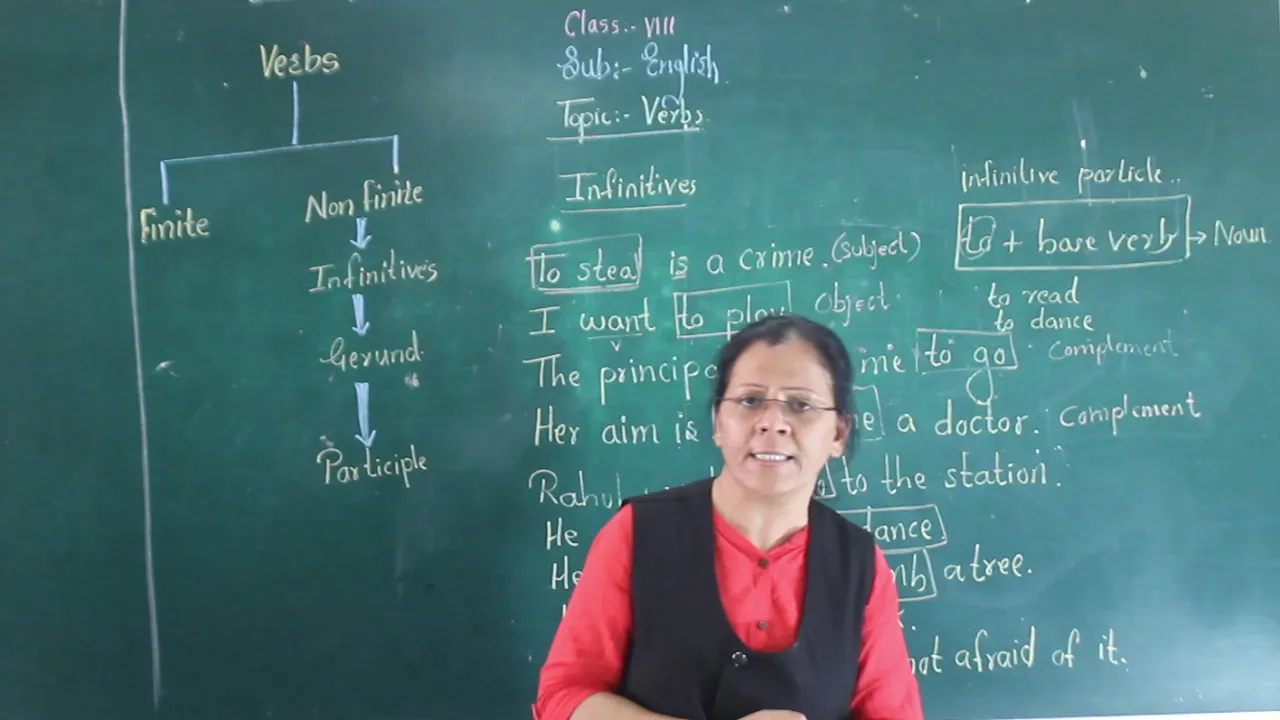 Class:- VIII
Sub:- English
Topic:- Verbs.
Verbs
Finite
Non finite
Infinitives
Gerund
Participle
Infinitives
infinitive particle..
to + base verb → Noun
to read
to dance
To steal is a crime. (subject)
I want to play object
The me to go complement
Her aim is a doctor. complement
to the station.
He dance
He a tree.
not afraid of it.